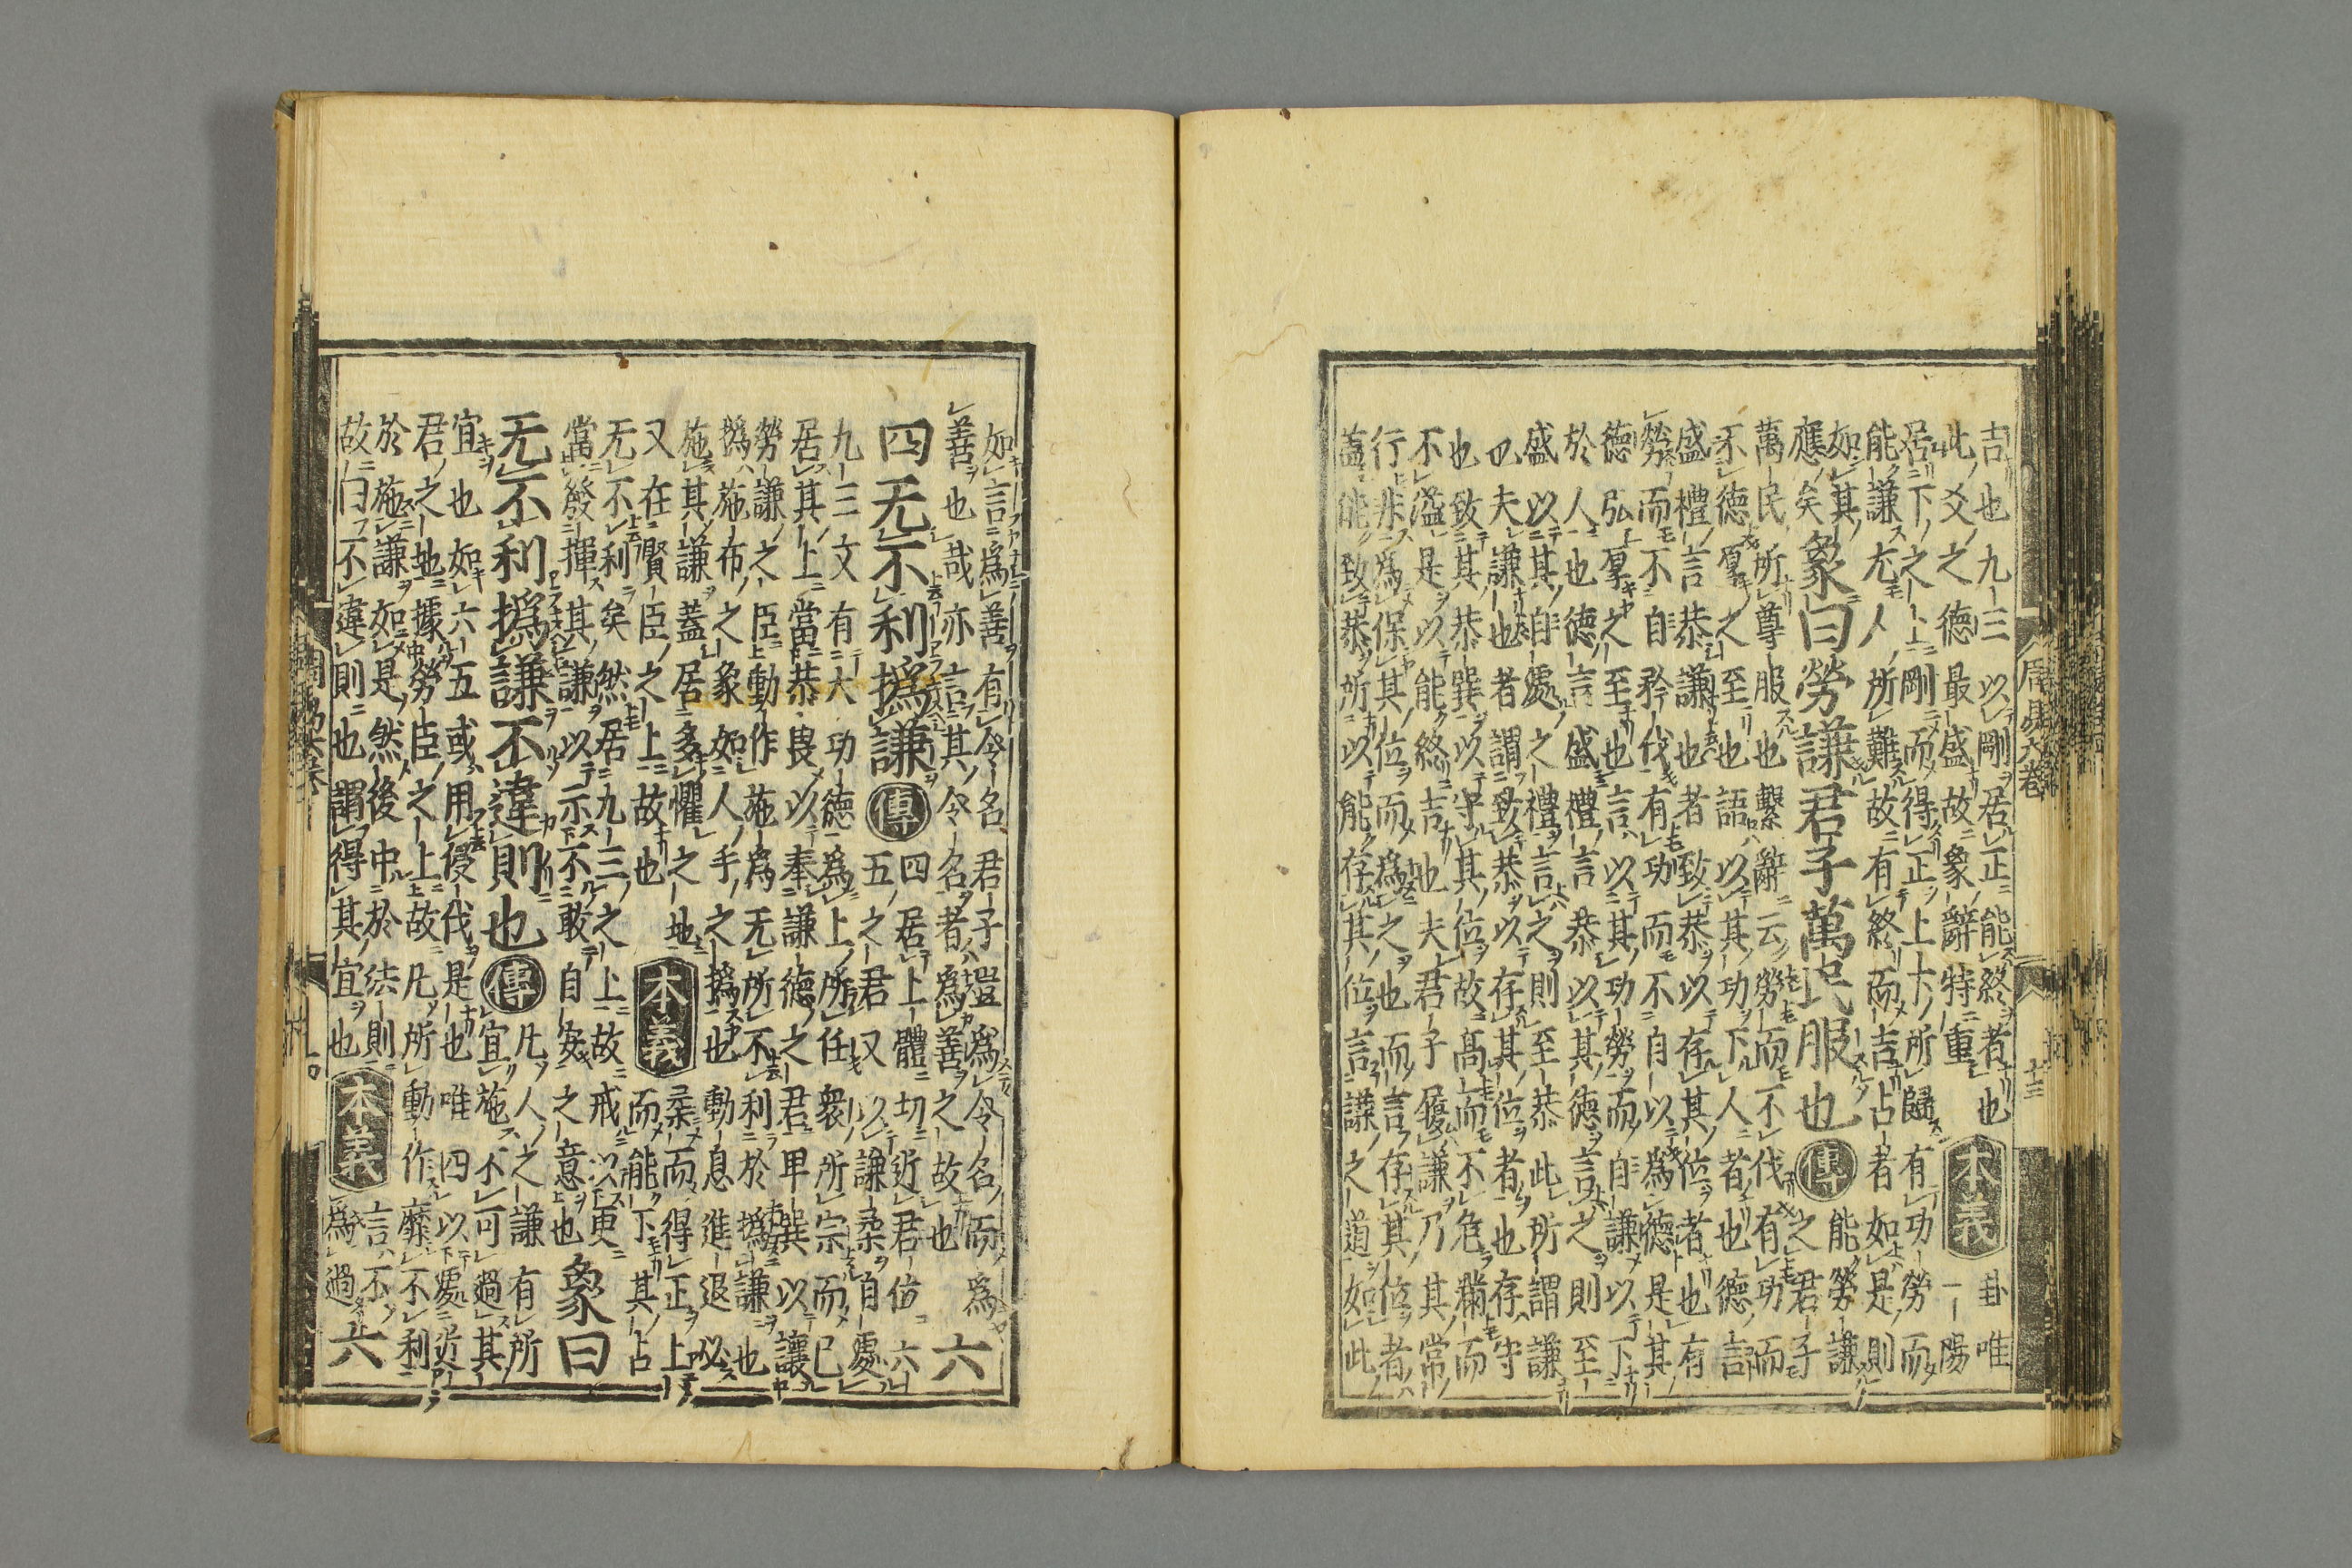 吉也九三以剛居正能終者也
此爻之德最盛故象辭特重
本義
卦唯
一陽
居下之上剛而得正上下所歸有功勞而
能謙尤人所難故有終而吉占者如是則
如其
應矣
象曰勞謙君子萬民服也
傳
能勞謙
之君子
萬民所尊服也繫辭云勞而不伐有功而
不德厚之至也語以其功下人者也德言
盛禮言恭謙也者致恭以存其位者也有
勞而不自矜伐有功而不自以為德是其
德弘厚之至也言以其功勞而自謙以下
於人也德言盛禮言恭以其德言之則至
盛以其自處之禮言之則至恭此所謂謙
也夫謙也者謂致恭以存其位者也存守
也致其恭巽以守其位故高而不危滿而
不溢是以能終吉也夫君子履謙乃其常
行非為保其位而為之也而言存其位者
蓋能致恭所以能存其位言謙之道如此
如言為善有令名君子豈為令名而為
善也哉亦言其令名者為善之故也
六
四无不利撝謙
傳
四居上體切近君位六
五之君又以謙柔自處
九三文有大功德為上所任衆所宗而已
居其上當恭畏以奉謙德之君卑巽以讓
勞謙之臣動作施為无所不利於撝謙也
撝施布之象如人手之撝也動息進退必
施其謙蓋居多懼之地
又在賢臣之上故也
本義
柔而得正上
而能下其占
无不利矣然居九三之上故戒以更
當發揮其謙以示不敢自安之意也
象曰
无不利撝謙不違則也
傳
凡人之謙有所
宜施不可過其
宜也如六五或用侵伐是也唯四以處近
君之地據勞臣之上故凡所動作靡不利
於施謙如是然後中於法則
故曰不違則也謂得其宜也
本義
言不
為過
六